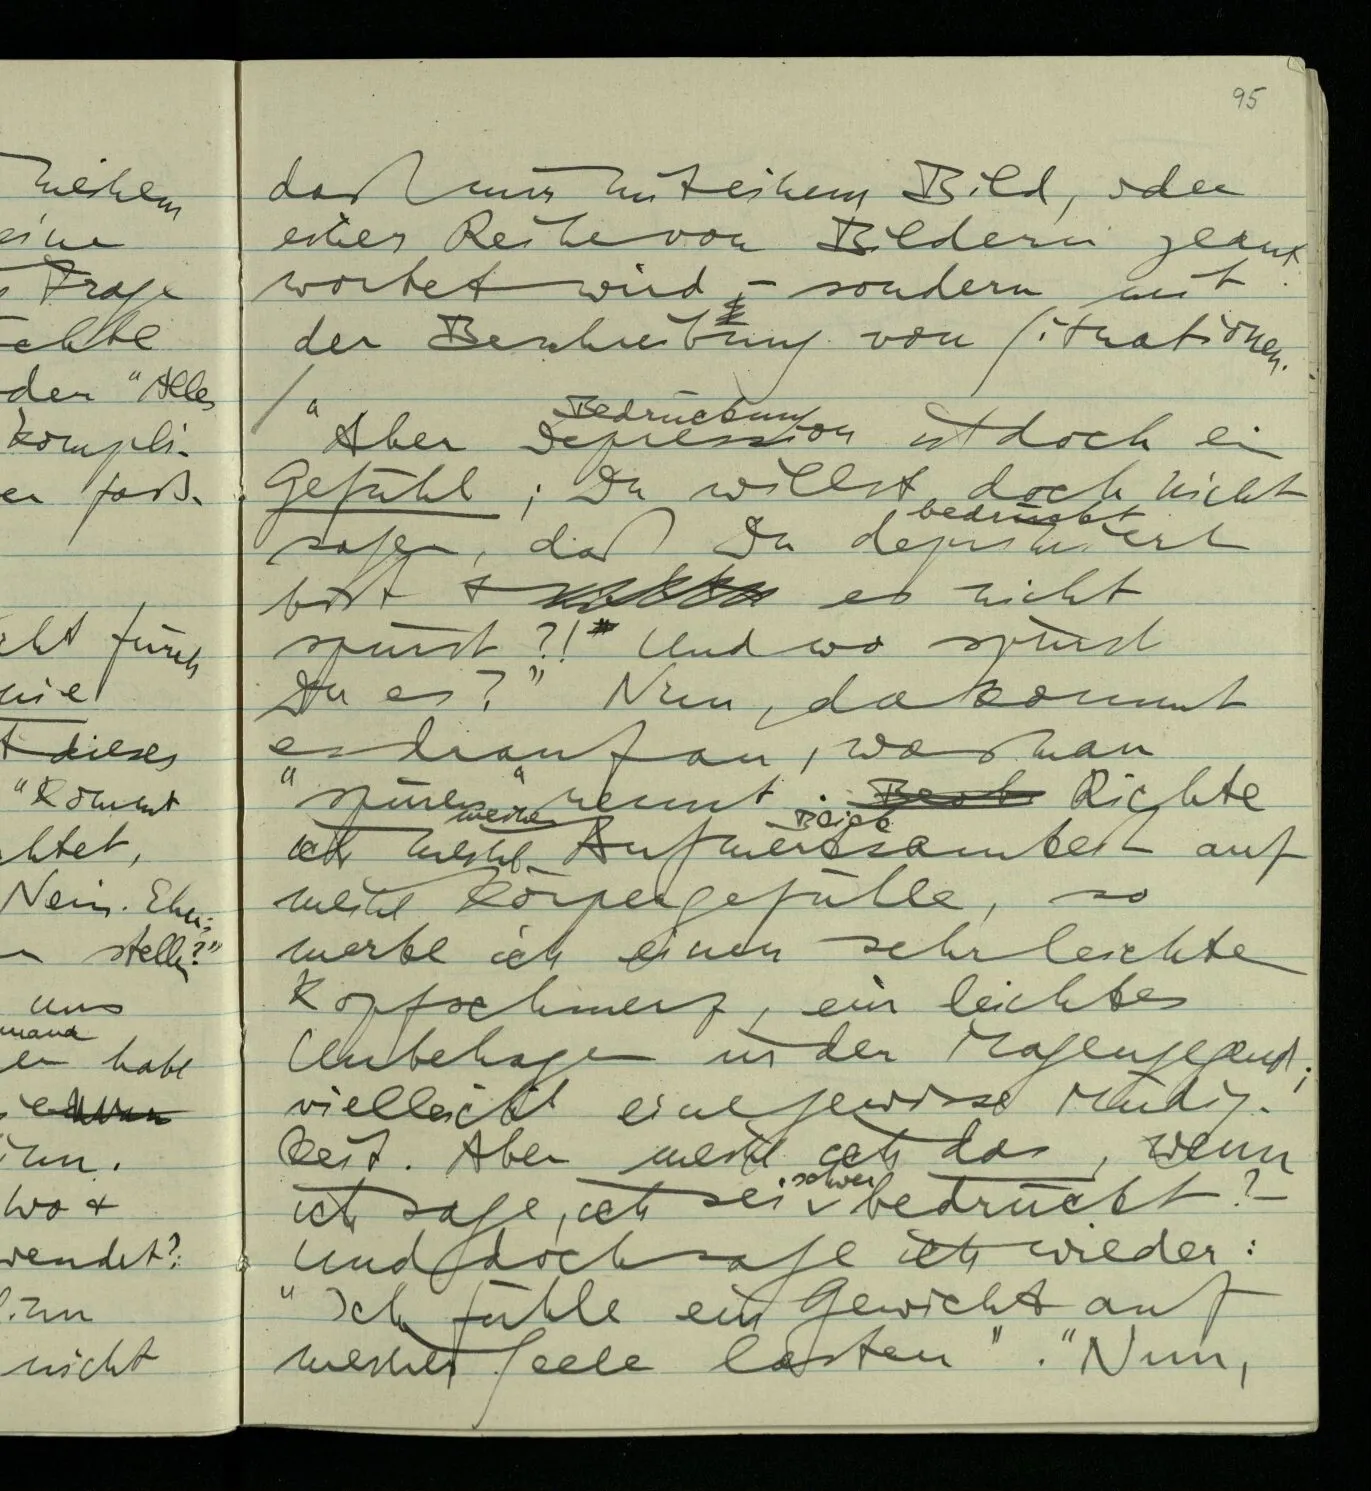 meinem
eine
Frage
chte
oder "Alles
kompli-
er faß-
cht
nie
t dieses
"Kommt
chtet,
Nein.
n stelle?"
uns
mand
er habe
ihm.
wo +
wendet?
nicht
95
daß mir mit einem Bild, oder
einer Reihe von Bildern geant
wortet wird, – sondern mit
der Beschreibung von Situationen.
/ "Aber Depression ist doch ein
Bedrückung
Gefühl; Du willst doch nicht
sagen, daß Du deprimiert
bedrückt
bist + es nicht
spürst?! Und wo spürst
Du es?" Nun, da kommt
es drauf an, was man
"spüren" nennt. Richte
ich meine Aufmerksamkeit auf
meinen Blick
meine Körpergefühle, so
merke ich einen sehr leichten
Kopfschmerz, ein leichtes
Unbehagen in der Magengegend;
vielleicht eine gewisse Müdig-
keit. Aber meine ich das, wenn
ich sage, ich sei schwer bedrückt? –
Und doch sage ich wieder:
"Ich fühle ein Gewicht auf
meiner Seele lasten". "Nun,